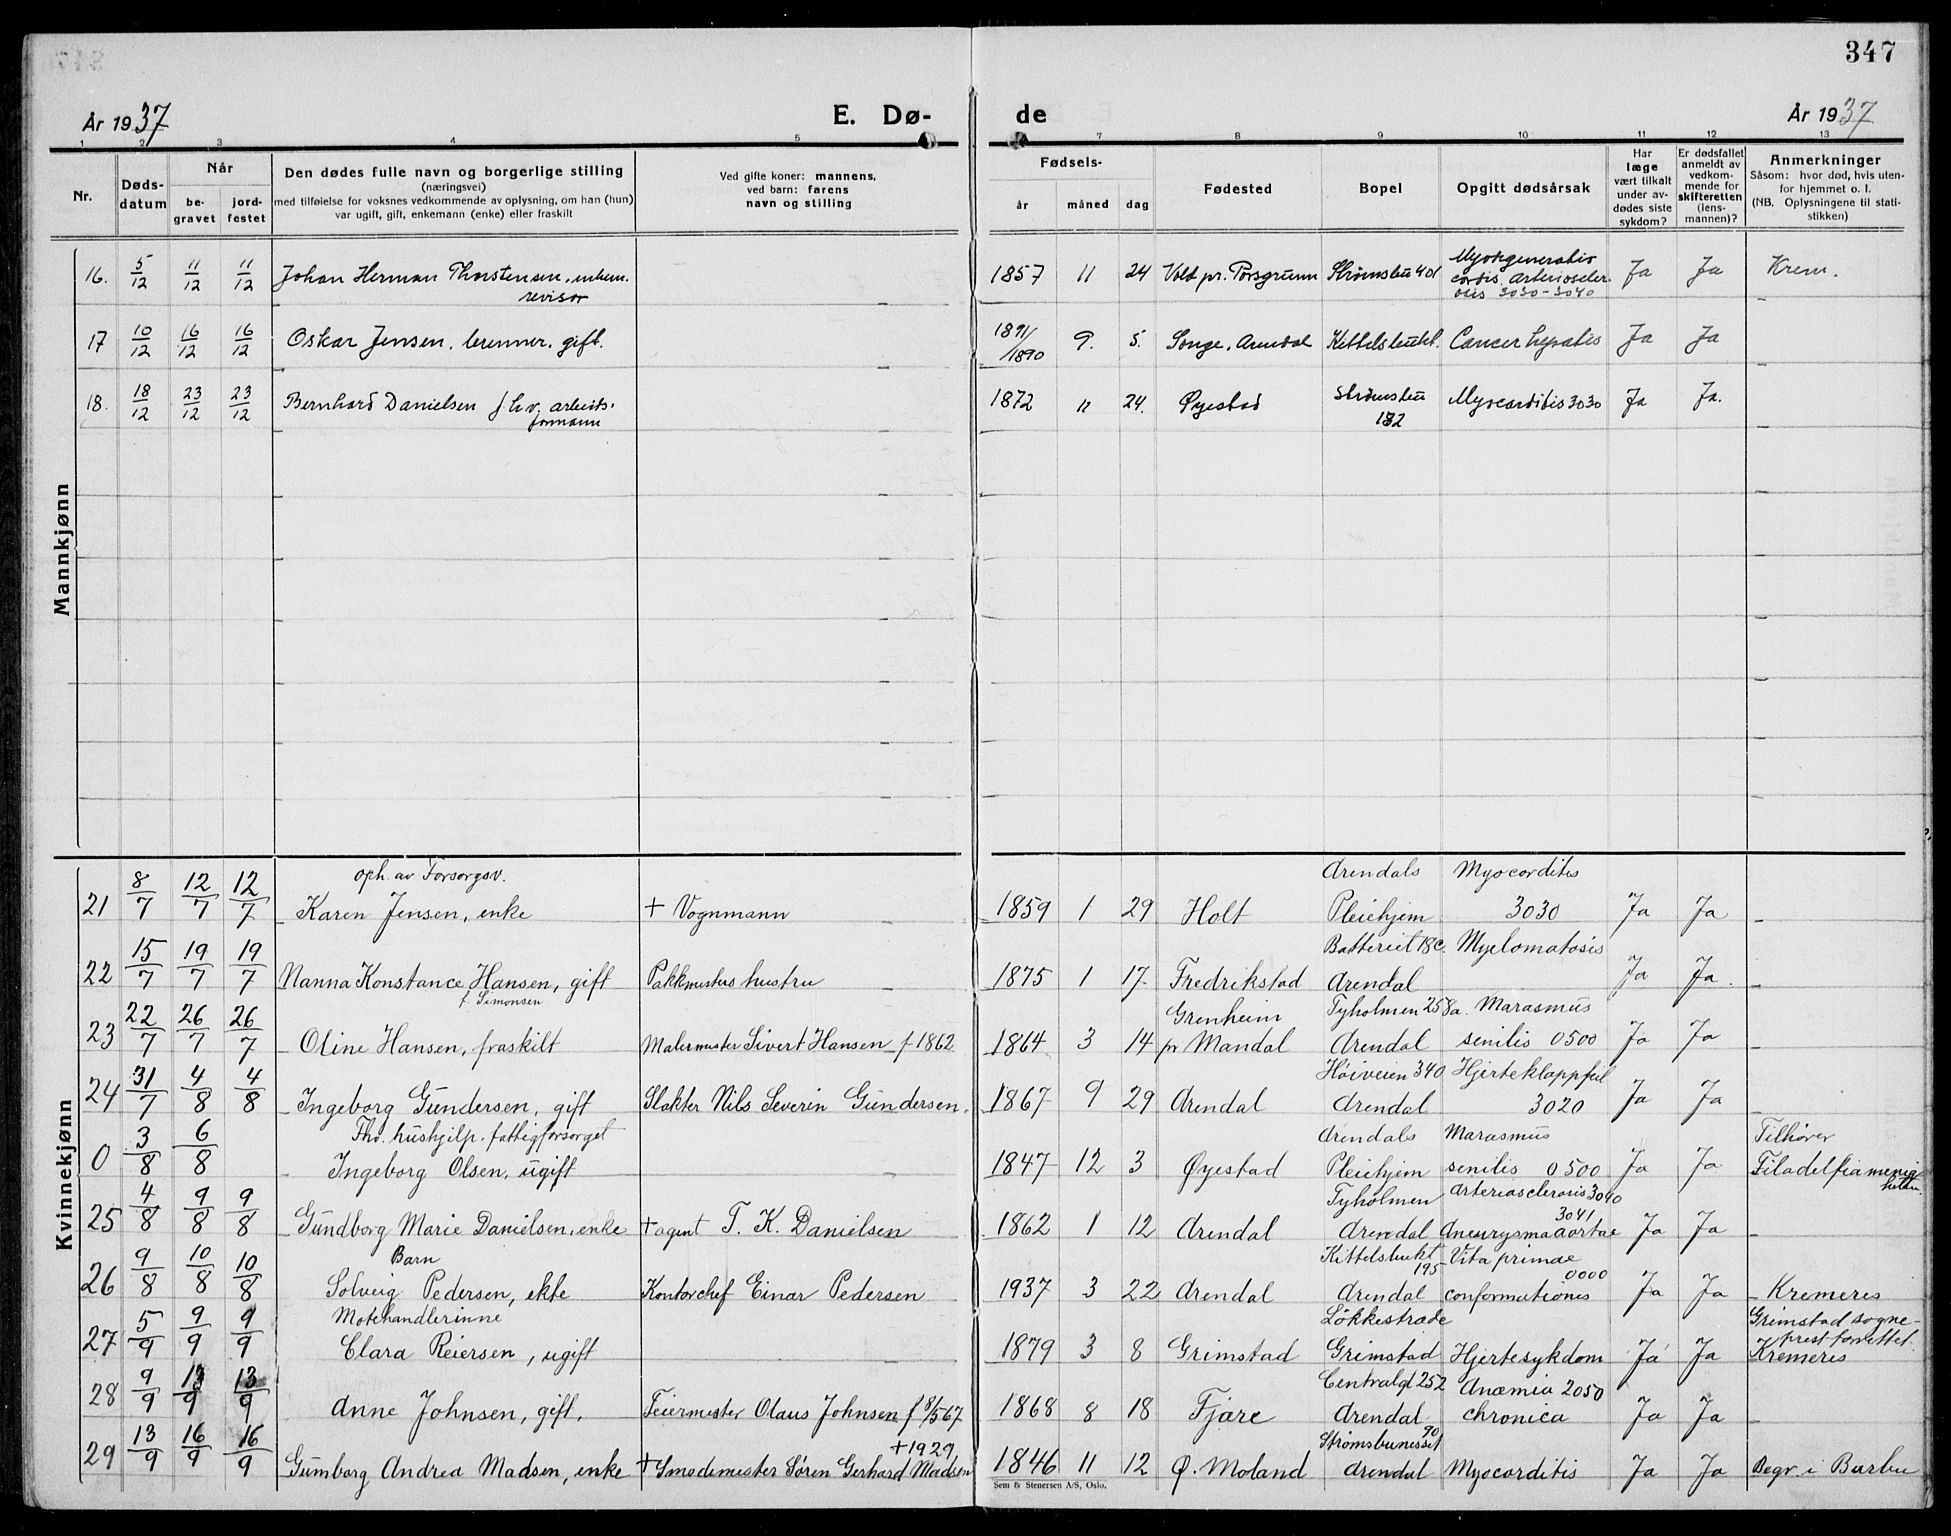 347
År 1937
E. Dø-
de
År 1937
1 2 3 4 5 7 8 9 10 11 12 13
Nr.
Døds-
datum
Når
be-
gravet
jord-
festet
Den dødes fulle navn og borgerlige stilling
(næringsvei)
med tilføielse for voksnes vedkommende av oplysning, om han (hun)
var ugift, gift, enkemann (enke) eller fraskilt
Ved gifte koner: mannens,
ved barn: farens
navn og stilling
Fødsels-
år måned dag
Fødested
Bopel
Opgitt dødsårsak
Har
læge
vært tilkalt
under av-
dødes siste
sykdom?
Er dødsfallet
anmeldt av
vedkom-
mende for
skifteretten
(lens-
mannen)?
Anmerkninger
Såsom: hvor død, hvis uten-
for hjemmet o. l.
(NB. Oplysningene til stati-
stikken)
Mannkjønn
16. 5/12 11/12 11/12 Johan Herman Thorstensen, enkem.
revisor
1857 11 24 Vold pr. Porsgrunn Strømsbu 401 Myodegeneratio
cordis. Arterioscler
osis 3030-3040
Ja Ja Krem.
17 10/12 16/12 16/12 Oskar Jensen, brenner, gift.
1891/1890 9. 5. Songe, Arendal Kittelsbukt. Cancer hepatis Ja Ja
18. 18/12 23/12 23/12 Bernhard Danielsen fhv. arbeids-
formann
1872 11 24. Øyestad Strømsbu
132
Myocarditis 3030 Ja Ja.
Kvinnekjønn
21 8/7 12/7 12/7 oph. av Forsorgsv.
Karen Jensen, enke + Vognmann
1859 1 29 Holt Arendals
Pleiehjem
Myocarditis
3030
Ja Ja
22 15/7 19/7 19/7 Nanna Konstance Hansen, gift
f. Simonsen
Pakkmesters hustru
1875 1 17. Fredrikstad Batteriet 18c.
Arendal
Myelomatosis
Ja Ja.
23 22/7 26/7 26/7 Oline Hansen, fraskilt Malermester Sivert Hansen f 1862
1864 3 14 Grenheim
pr Mandal
Tyholmen 258a.
Arendal
Marasmus
senilis 0500
Ja Ja
24 31/7 4/8 4/8 Ingeborg Gundersen, gift Slakter Nils Severin Gundersen.
1867 9 29 Arendal Høiveien 340
Arendal
Hjerteklappfeil
3020
Ja Ja
0 3/8 6/8 Fhv. hushjelp. fattigforsorget
Ingeborg Olsen, ugift
1847 12 3 Øyestad Arendals
Pleiehjem
Marasmus
senilis 0500
Ja Ja
Tilhører
Filadelfiamenig
heten.
25 4/8 9/8 9/8 Gundborg Marie Danielsen, enke + agent T. K. Danielsen
1862 1 12 Arendal Tyholmen
Arendal
Arteriosclerosis 3040
3041
Aneurysma aortae
Ja Ja
26 9/8 10/8 10/8 Barn
Solveig Pedersen, ekte Kontorchef Einar Pedersen
1937 3 22 Arendal Kittelsbukt
195
Arendal
Vita primae
0000
conformationis
Ja Ja Kremeres
27 5/9 9/9 9/9 Motehandlerinne
Clara Reiersen, ugift
1879 3 8 Grimstad Løkkestræde
Grimstad Hjertesykdom Ja Ja
Grimstad sogne-
prest forrettet.
Kremeres
28 9/9 13/9 13/9 Anne Johnsen, gift. Feiermester Olaus Johnsen f 8/5 67
1868 8 18 Fjære Centralgt 252
Arendal
Anæmia 2050
chronica
Ja Ja
29 13/9 16/9 16/9 Gumborg Andrea Madsen, enke + 1929
+ Smedemester Søren Gerhard Madsen
1846 11 12 Ø. Moland Strømsbuneset
90
Arendal Myocarditis Ja Ja Begr. i Barbu
Sem & Stenersen A/S, Oslo.